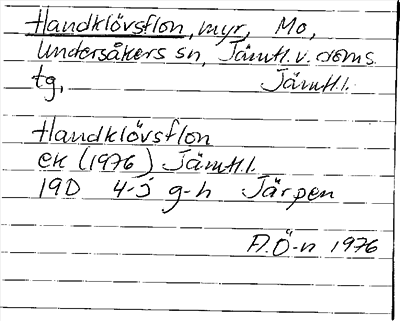 Handklövsflon, myr, Mo,
Undersåkers sn, Jämtl. v. doms.
tg, Jämtl.l.
Handklövsflon
ek (1976) Jämtl.l.
19D 4-j g-h Järpen
A.Ö-n 1976